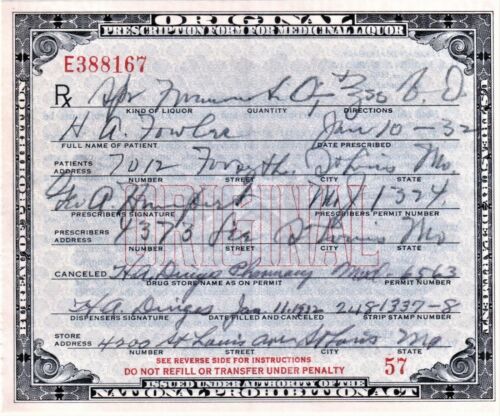 ORIGINAL
PRESCRIPTION FORM FOR MEDICINAL LIQUOR
E388167
Rx Spr Frumenti
KIND OF LIQUOR QUANTITY DIRECTIONS
H A. Fowler Jan 10-32
FULL NAME OF PATIENT DATE PRESCRIBED
PATIENTS ADDRESS 7012 Forsyth. St Louis Mo
NUMBER STREET CITY STATE
Mo 1324
PRESCRIBERS SIGNATURE PRESCRIBERS PERMIT NUMBER
PRESCRIBERS ADDRESS St Louis Mo
NUMBER STREET CITY STATE
CANCELED H.A. Dinges Pharmacy 6563
DRUG STORE NAME AS ON PERMIT PERMIT NUMBER
H A Dinges Jan 11 1932 2481337-8
DISPENSERS SIGNATURE DATE FILLED AND CANCELED STRIP STAMP NUMBER
STORE ADDRESS 4200 St Louis Ave St Louis Mo
NUMBER STREET CITY STATE
SEE REVERSE SIDE FOR INSTRUCTIONS
DO NOT REFILL OR TRANSFER UNDER PENALTY 57
ISSUED UNDER AUTHORITY OF THE
NATIONAL PROHIBITION ACT
BUREAU OF PROHIBITION
U.S. TREASURY DEPARTMENT
ORIGINAL